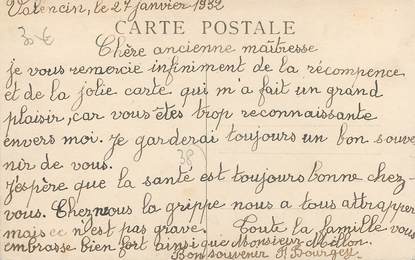 Valencin, le 27 janvier 1932
CARTE POSTALE
30 €
Chère ancienne maîtresse
je vous remercie infiniment de la récompence
et de la jolie carte qui m'a fait un grand
plaisir, car vous êtes trop reconnaissante
envers moi. Je garderai toujours un bon souve
nir de vous.
38
J'espère que la santé est toujours bonne chez-
vous. Chez nous la grippe nous a tous attrapper
mais ce n'est pas grave. Toute la famille vous
embrasse bien fort ainsi que Monsieur Mellon.
Bon souvenir